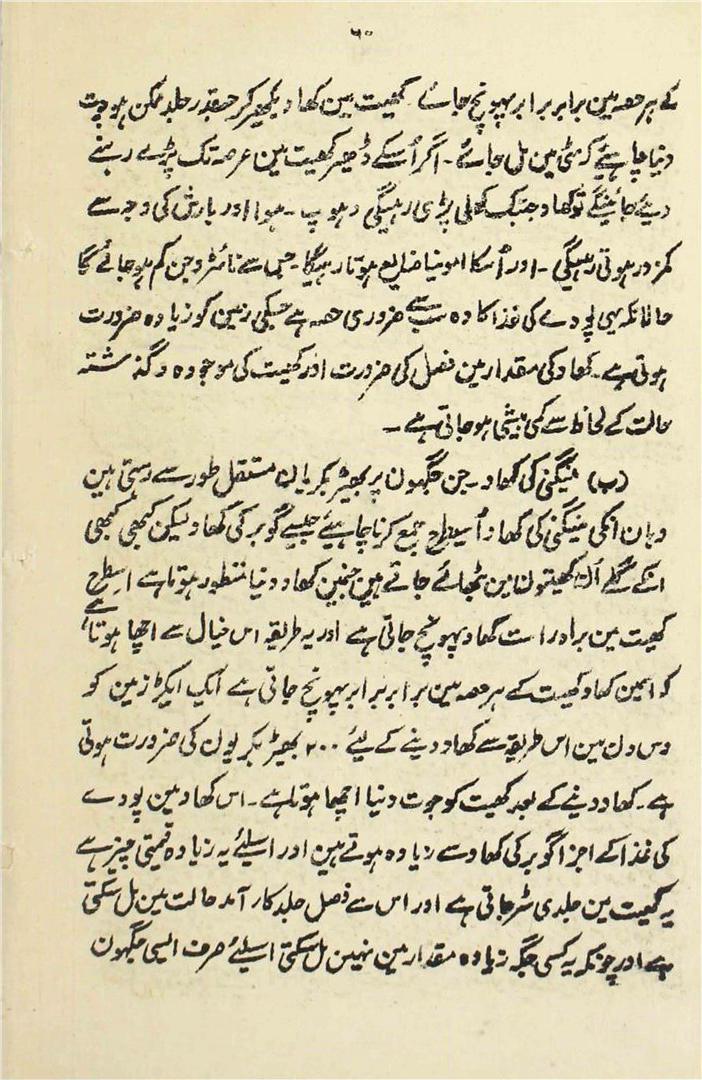 ۶۰
کے ہر حصہ مین برابر برابر پہونچ جائے۔ کھیت مین کھاد بکھیر کر جسقدر جلد ممکن ہو جوت
دینا چاہئیے کہ مٹی مین مل جائے۔ اگر اُسکے ڈھیر کھیت مین عرصہ تک پڑے رہنے
دیئے جائینگے تو کھاد جبتک کھلی پڑی رہیگی دہوپ۔ ہوا اور بارش کی وجہ سے
کمزور ہوتی رہیگی۔ اور اُسکا امونیا ضایع ہوتا رہیگا۔ جس سے نائٹروجن کم ہو جائے گا
حالانکہ یہی پودے کی غذا کا وہ سب سے ضروری حصہ ہے جسکی زمین کو زیادہ ضرورت
ہوتی ہے۔ کھاد کی مقدار مین فصل کی ضرورت اور کھیت کی موجودہ و گذشتہ
حالت کے لحاظ سے کمی بیشی ہو جاتی ہے۔
(ب) مینگنی کی کھاد۔ جن جگہون پر بھیڑ بکریان مستقل طور سے رہتی ہین
وہان انکی مینگنی کی کھاد اُسیطرح جمع کرنا چاہیئے جیسے گوبر کی کھاد لیکن کبھی کبھی
انکے گلے اُن کھیتون مین بٹھائے جاتے ہین جنمین کھاد دینا منظور ہوتا ہے اسطرح
کھیت مین براہ راست کھاد پہونچ جاتی ہے اور یہ طریقہ اس خیال سے اچھا ہوتا ہے
کہ اسمین کھاد کھیت کے ہر حصہ مین برابر برابر پہونچ جاتی ہے ایک ایکڑ زمین کو
دس دن مین اس طریقہ سے کھاد دینے کے لیئے ۲۰۰ بھیڑ بکریون کی ضرورت ہوتی
ہے۔ کھاد دینے کے بعد کھیت کو جوت دینا اچھا ہوتا ہے۔ اس کھاد مین پودے
کی غذا کے اجزا گوبر کی کھاد سے زیادہ ہوتے ہین اور اسلیئے یہ زیادہ قیمتی چیز ہے
یہ کھیت مین جلدی سڑ جاتی ہے اور اس سے فصل جلد کارآمد حالت مین مل سکتی
ہے اور چونکہ یہ کسی جگہ زیادہ مقدار مین نہین مل سکتی اسلیئے صرف ایسی جگہون